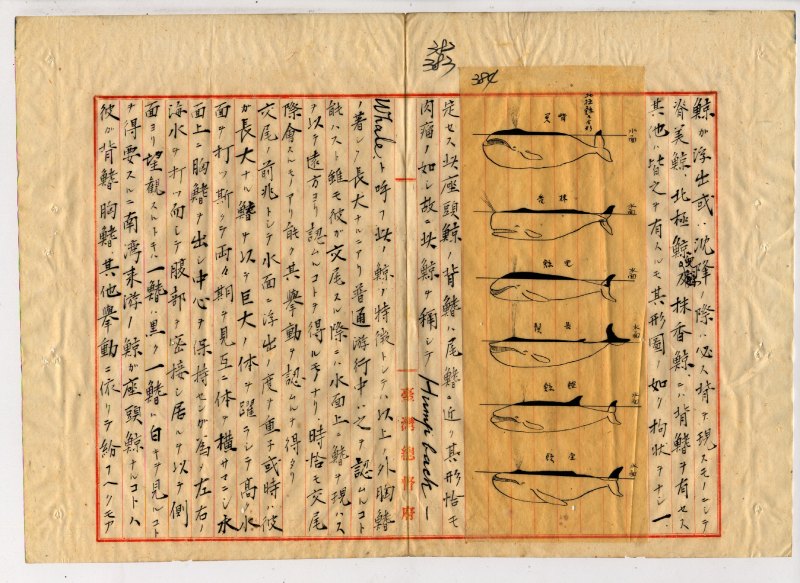 鯨ガ浮出或ハ沈降ノ際ハ必ス背ヲ現スモノニシテ
脊美鯨北極鯨及抹香鯨ニハ背鰭ヲ有セス
其他ハ皆之ヲ有スルモ其形圖ノ如ク拘状ヲナシ一
384
383
水面
水面
水面
水面
水面
水面
定セス此座頭鯨ノ背鰭ハ尾鰭ニ近ク其形恰モ
肉瘤ノ如シ故ニ此鯨ヲ稱シテ Hump back
Whale ト呼フ此ノ鯨ノ特徴トシテハ以上ノ外胸鰭
ノ著シク長大ナルニアリ普通游行中ハ之ヲ認ムル
能ハスト雖モ彼ガ交尾スル際ニハ水面上ニ鰭ヲ現ハス
ヲ以テ遠方ヨリ認ムルコトヲ得ルモノナリ時恰モ交尾
際會スルモノアリ能ク其擧動ヲ認ムルヲ得タリ
交尾ノ前兆トシテ水面ニ浮出ノ度ヲ重子或時ハ彼
ガ長大ナル鰭ヲ以テ巨大ノ体ヲ躍ラシテ高ク水
面ヲ打ツ斯クテ両々期ヲ見互ニ体ヲ横サマニシ水
面上ニ胸鰭ヲ出シ中心ヲ保持センガ為メ左右ノ
海水ヲ打ツ而シテ腹部ヲ密接シ居ルヲ以テ側
面ヨリ望観スルトキハ一鰭ハ黒ク一鰭ハ白キヲ見ルコト
ヲ得要スルニ南湾来游ノ鯨ガ座頭鯨ナルコトハ
彼ガ背鰭胸鰭其他擧動ニ依リテ紛フヘクモア
臺灣總督府